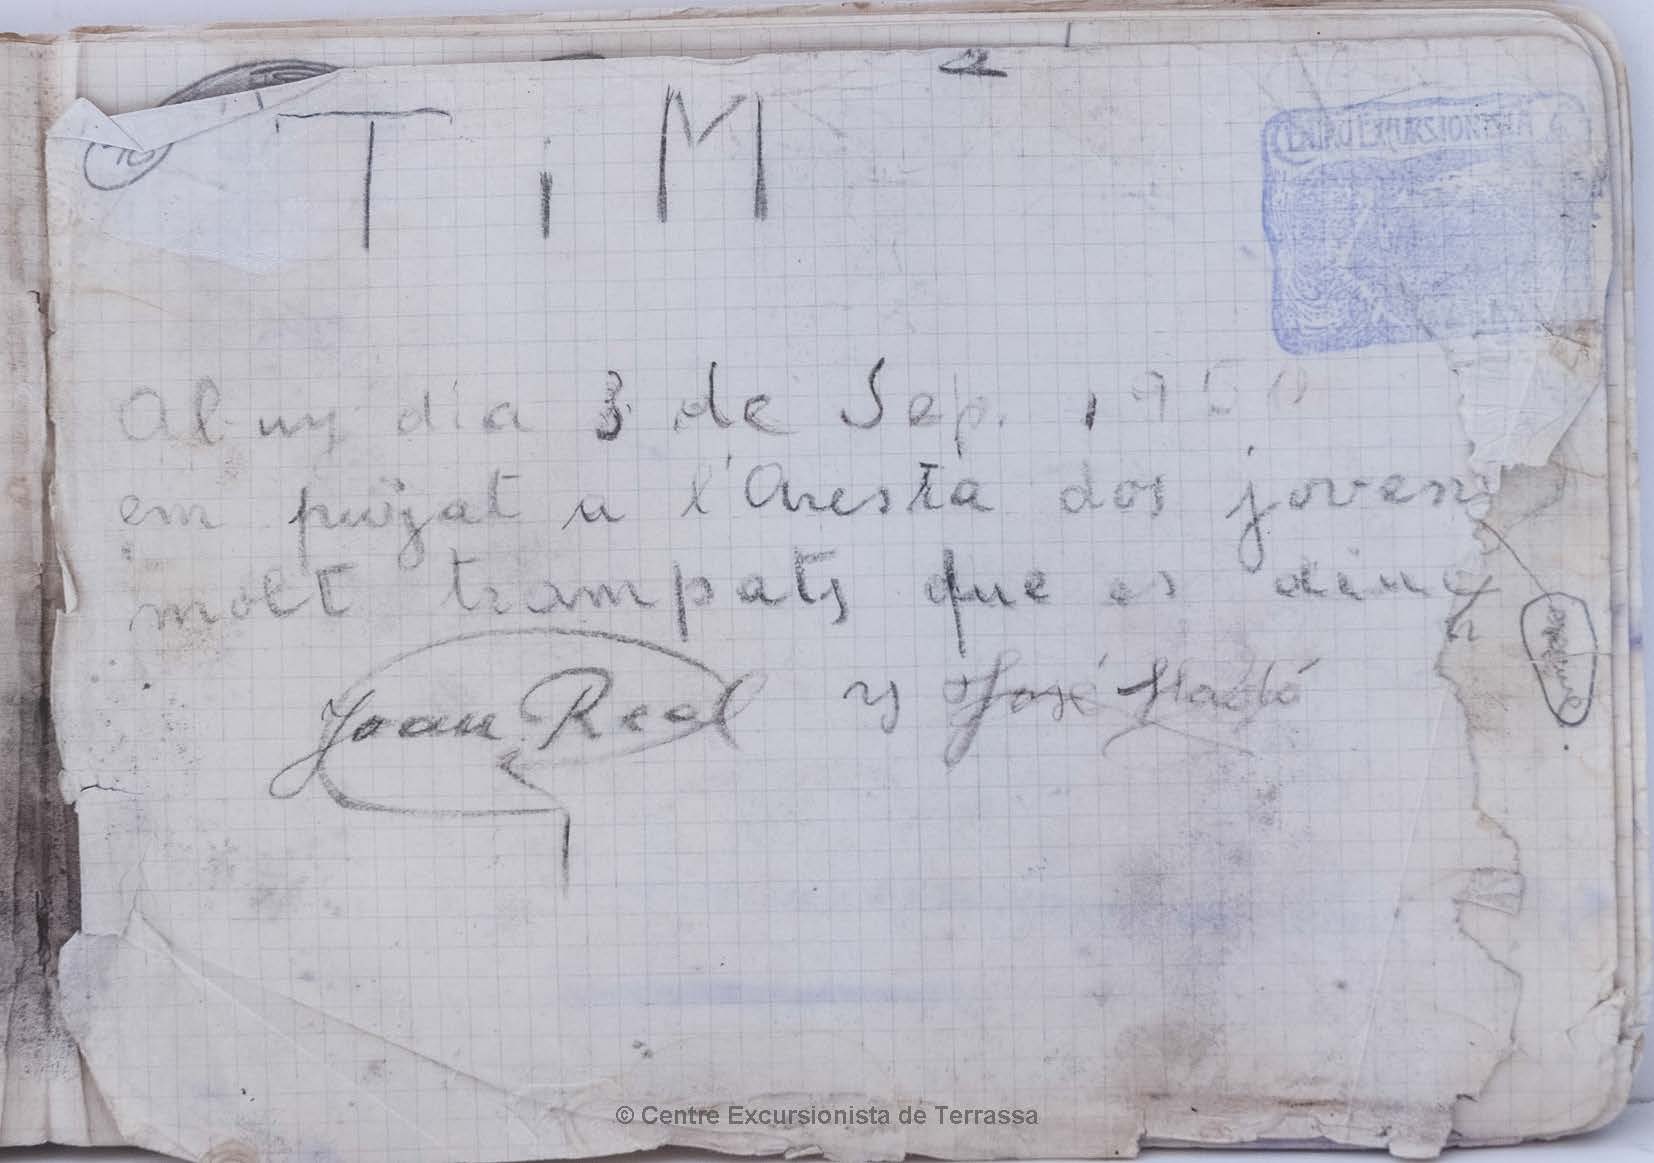 T i M
CENTRO EXCURSIONISTA
Al uy dia 3 de Sep. 1950
em puïgat a l'Aresta dos jovens
molt trampats que es dine
Joan Real y José
© Centre Excursionista de Terrassa